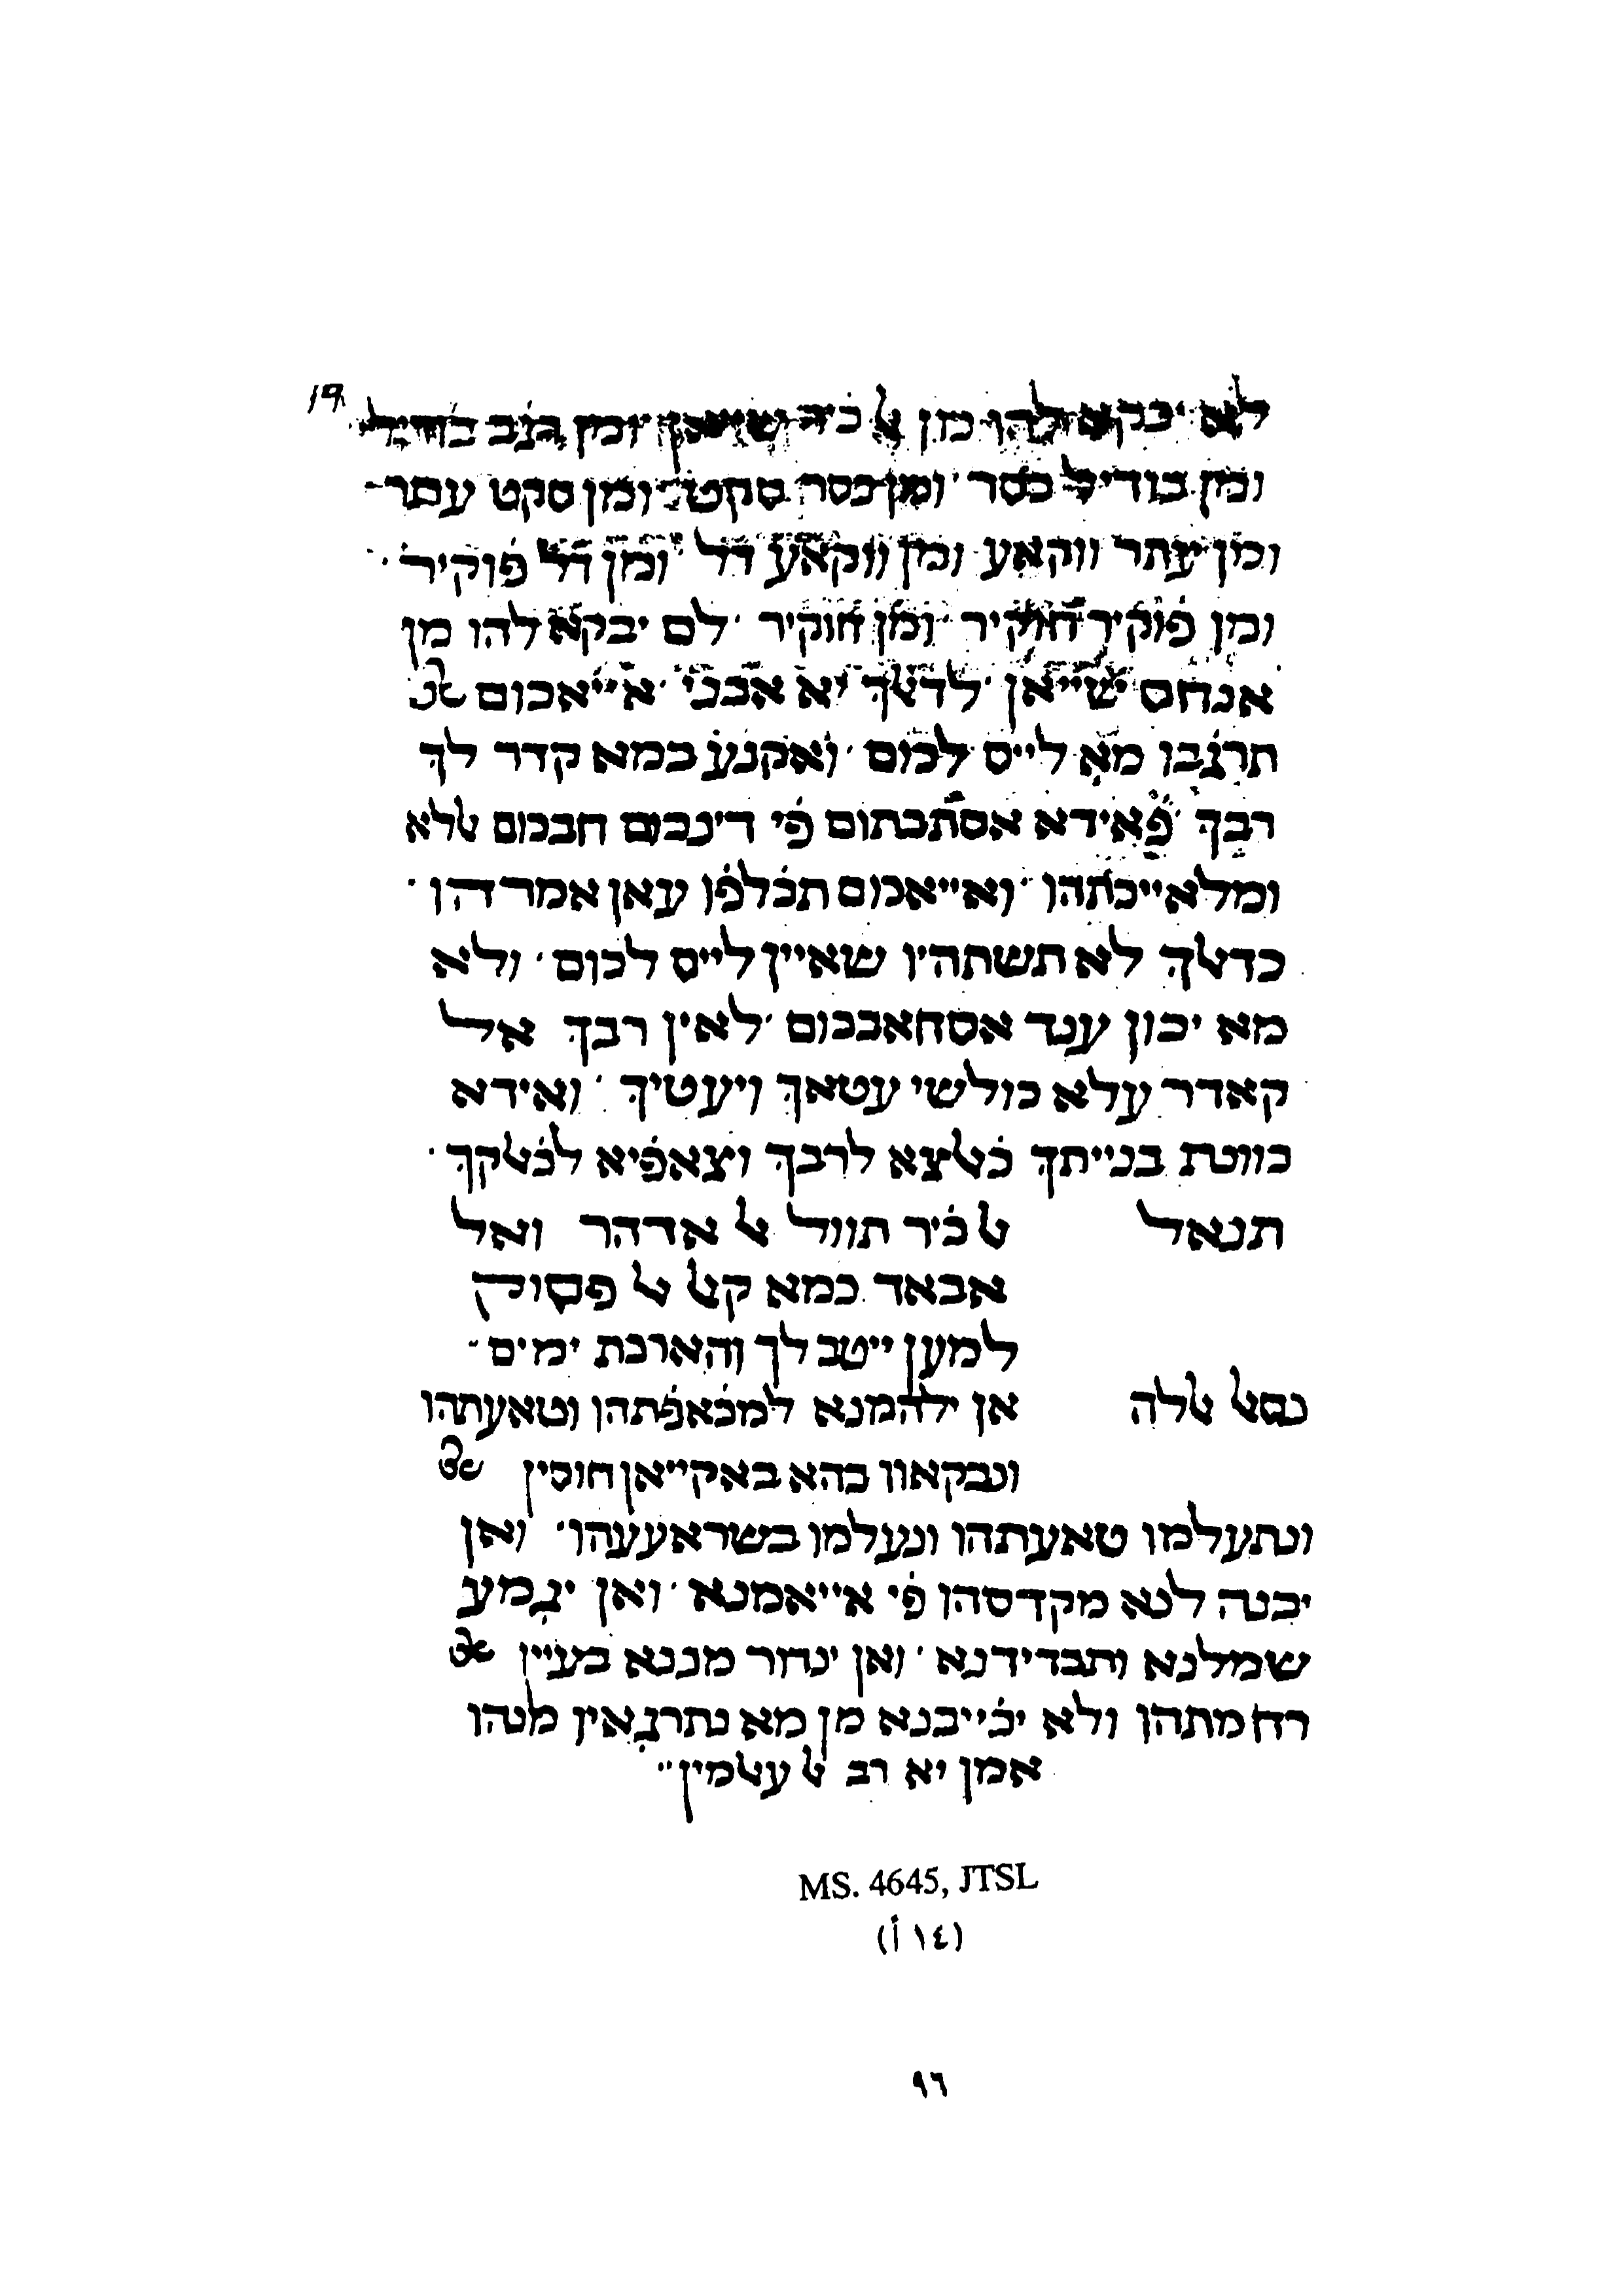 19
לא יבקא להו מן אל כיר שייאן ומן גׄנב בוהדל
ומן בודיל כסר ׳ ומן כסר סקט ׳ ומן סקט עתר
ומן עתר ווקאע ומן ווקאע דל ׳ ומן דל פׄוקיר ׳
ומן פׄוקיר חוקיר ׳ ומן חוקיר ׳ לם יבקא להו מן
אנחס שייאן ׳ לדאלך יא אבני ׳ אייאכום
תרגׄבו מא לייס לכום ׳ ואקנע במא קדר לך
רבך ׳ פׄאידא אסתבתום פׄי דינכום חבכום אללא
ומלאייכתהו ׳ ואייאכום תכׄלפׄו עאן אמרהו ׳
כדאלך לא תשתהיו שאיין לייס לכום ׳ ולא
מא יכון ענד אסחאבכום ׳ לאין רבך אל
קאדר עלא כולשי עטאך ויעטיך ׳ ואידא
כוונת בנייתך כׄאלצא לרבך וצאפׄיא לכׄאלקך ׳
תנאל אל כׄיר תוול אל אדהר ואל
אבאד כמא קאל אל פסוק
למען ייטב לך והארכת ימים
נסאל אללה אן ילהמנא למכׄאפׄתהו וטאעתהו
ונבקאוו בהא באקייאן חוסין
ונתעלמו טאעתהו ונעלמו בשראעעהו ׳ ואן
יבנה לנא מקדסהו פׄי אייאמנא ׳ ואן יגׄמע
שמלנא ותבדידנא ׳ ואן ינחר מננא בעיין
רחמתהו ולא יכׄייבנא מן מא נתרגׄאין מנהו
אמן יא רב אל עאלמין
MS. 4645, JTSL
(١٤ أ)
٩٦